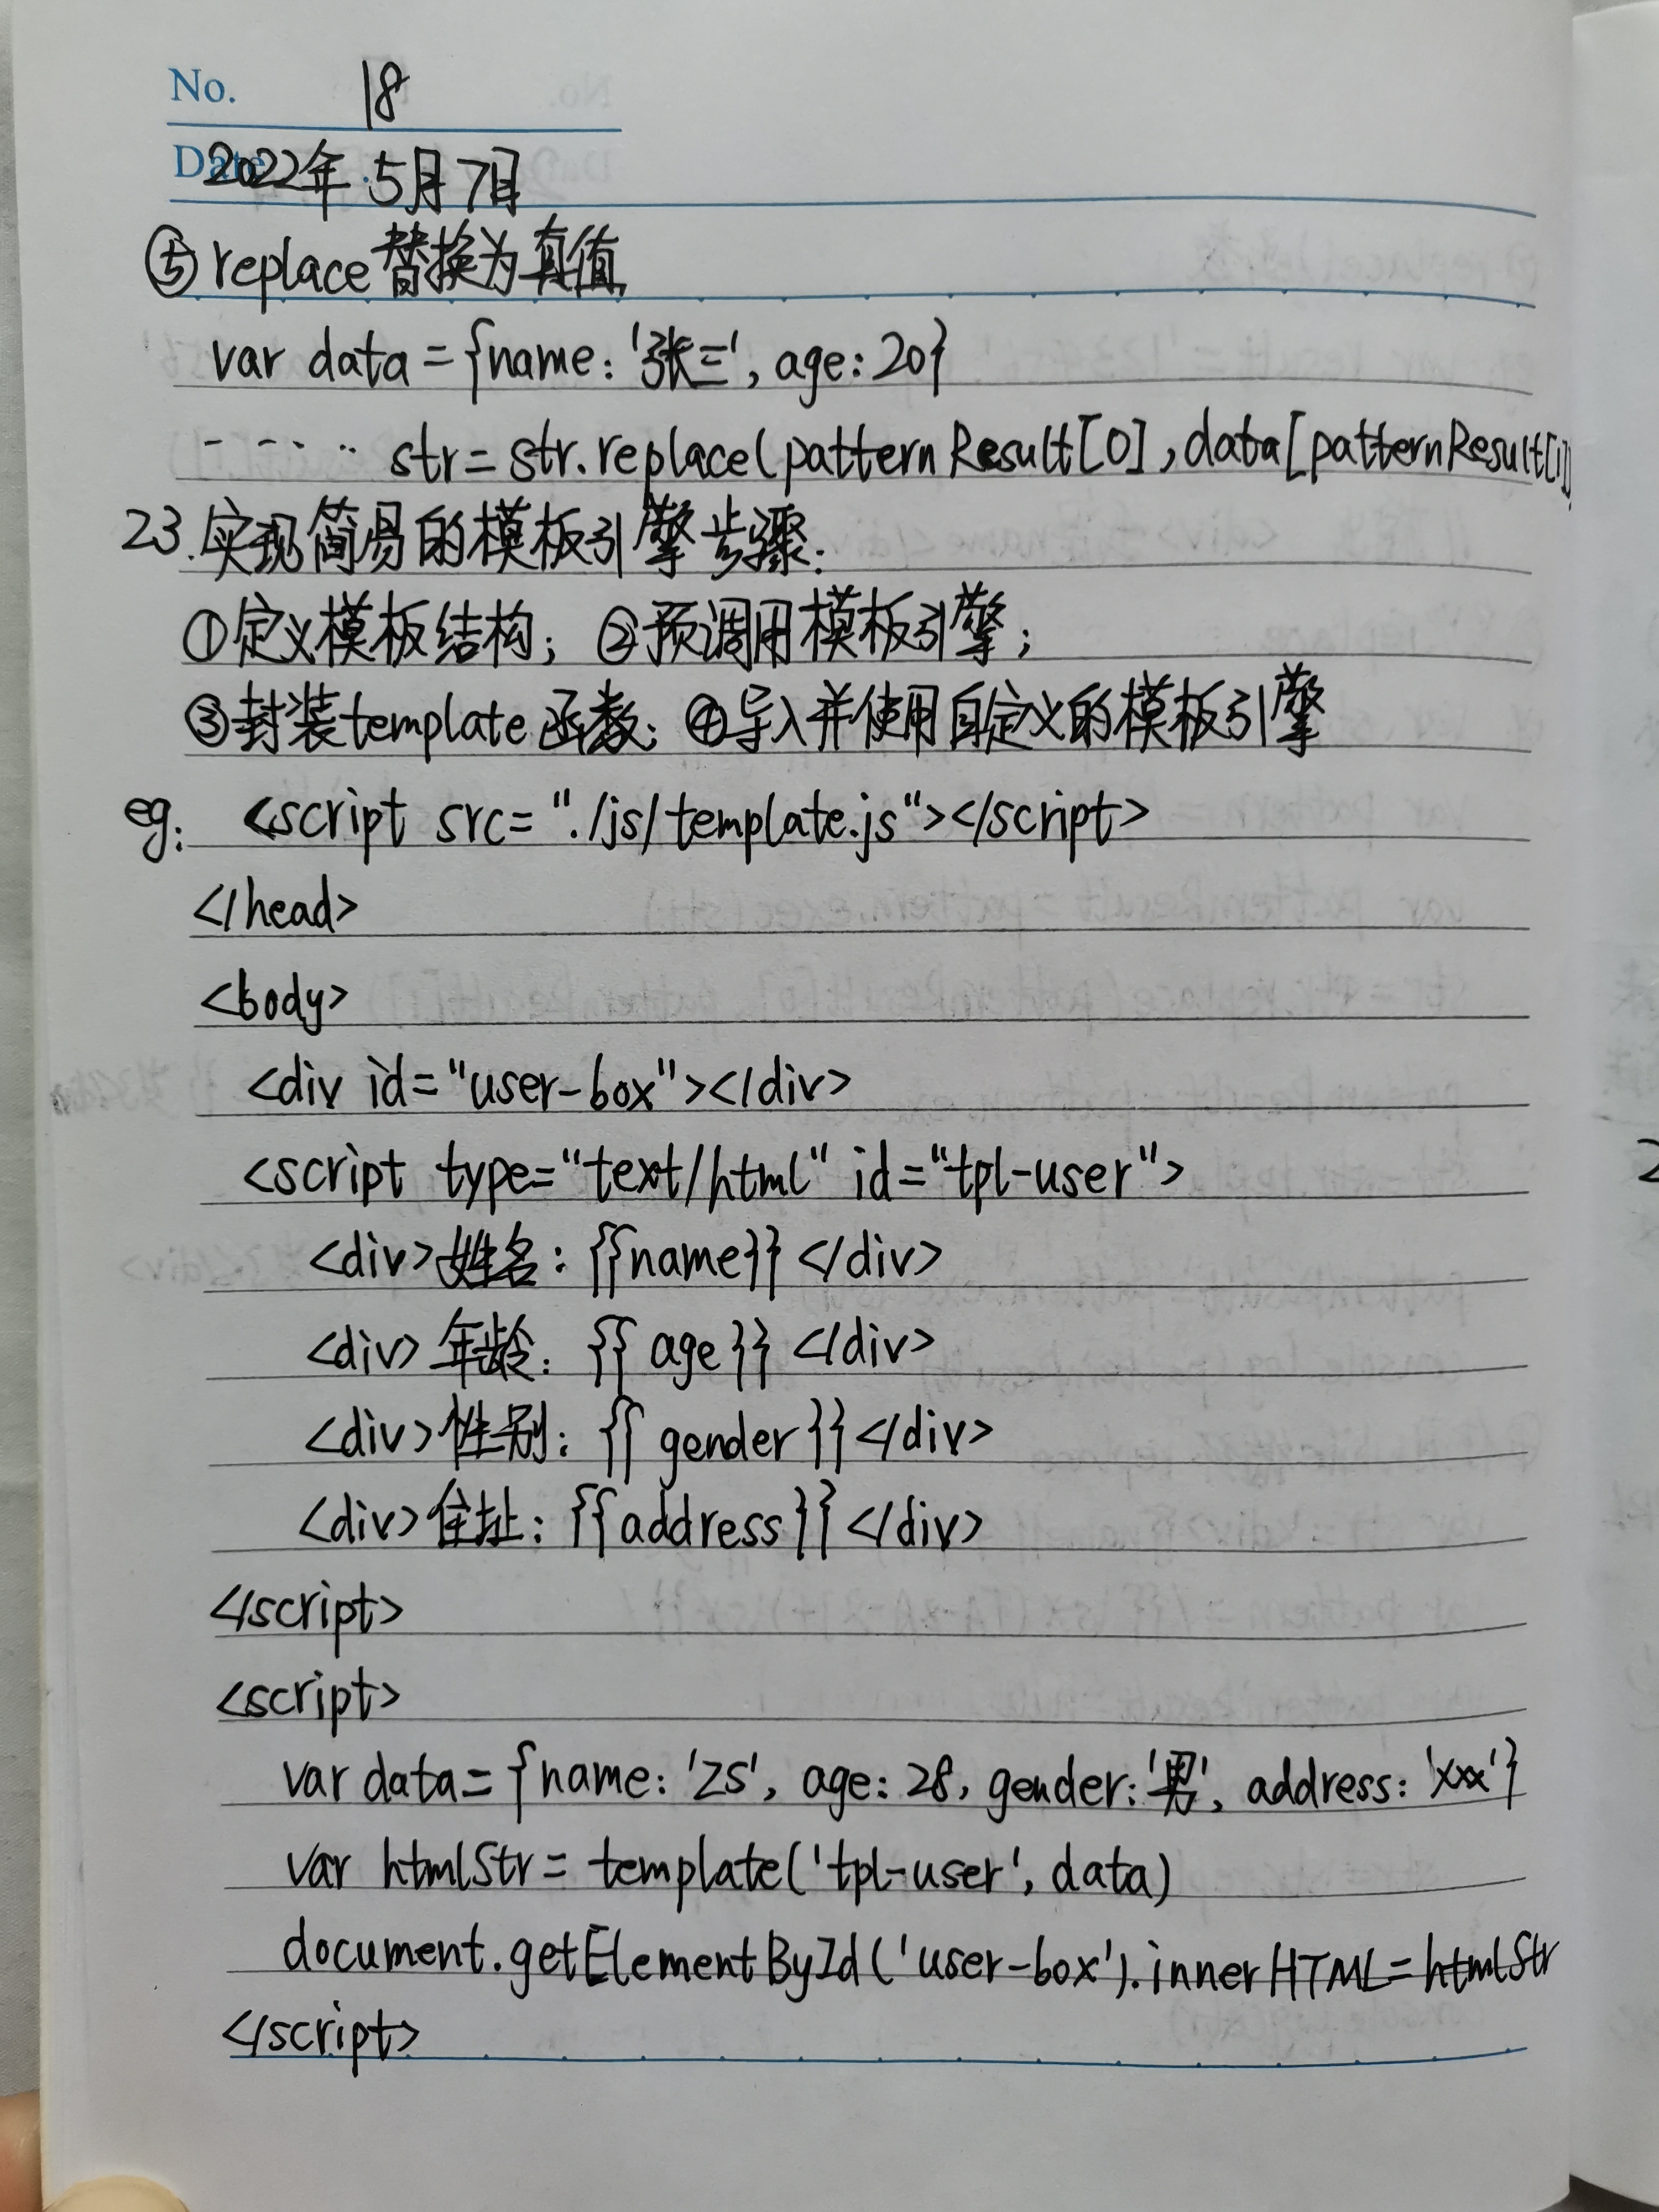 No. 18
Date 2022年 5月7日
⑤replace替换为真值
var data = {name: '张三', age: 20}
····· str = str.replace(patternResult[0], data[patternResult[1]]
23.实现简易的模板引擎步骤:
①定义模板结构; ②预调用模板引擎;
③封装template函数; ④导入并使用自定义的模板引擎
eg: <script src="./js/template.js"></script>
</head>
<body>
<div id="user-box"></div>
<script type="text/html" id="tpl-user">
<div>姓名: {{name}} </div>
<div>年龄: {{ age }} </div>
<div>性别: {{ gender }} </div>
<div>住址: {{address}} </div>
</script>
<script>
var data = {name: 'zs', age: 28, gender: '男', address: 'xxx'}
var htmlStr = template('tpl-user', data)
document.getElementById('user-box').innerHTML = htmlStr
</script>